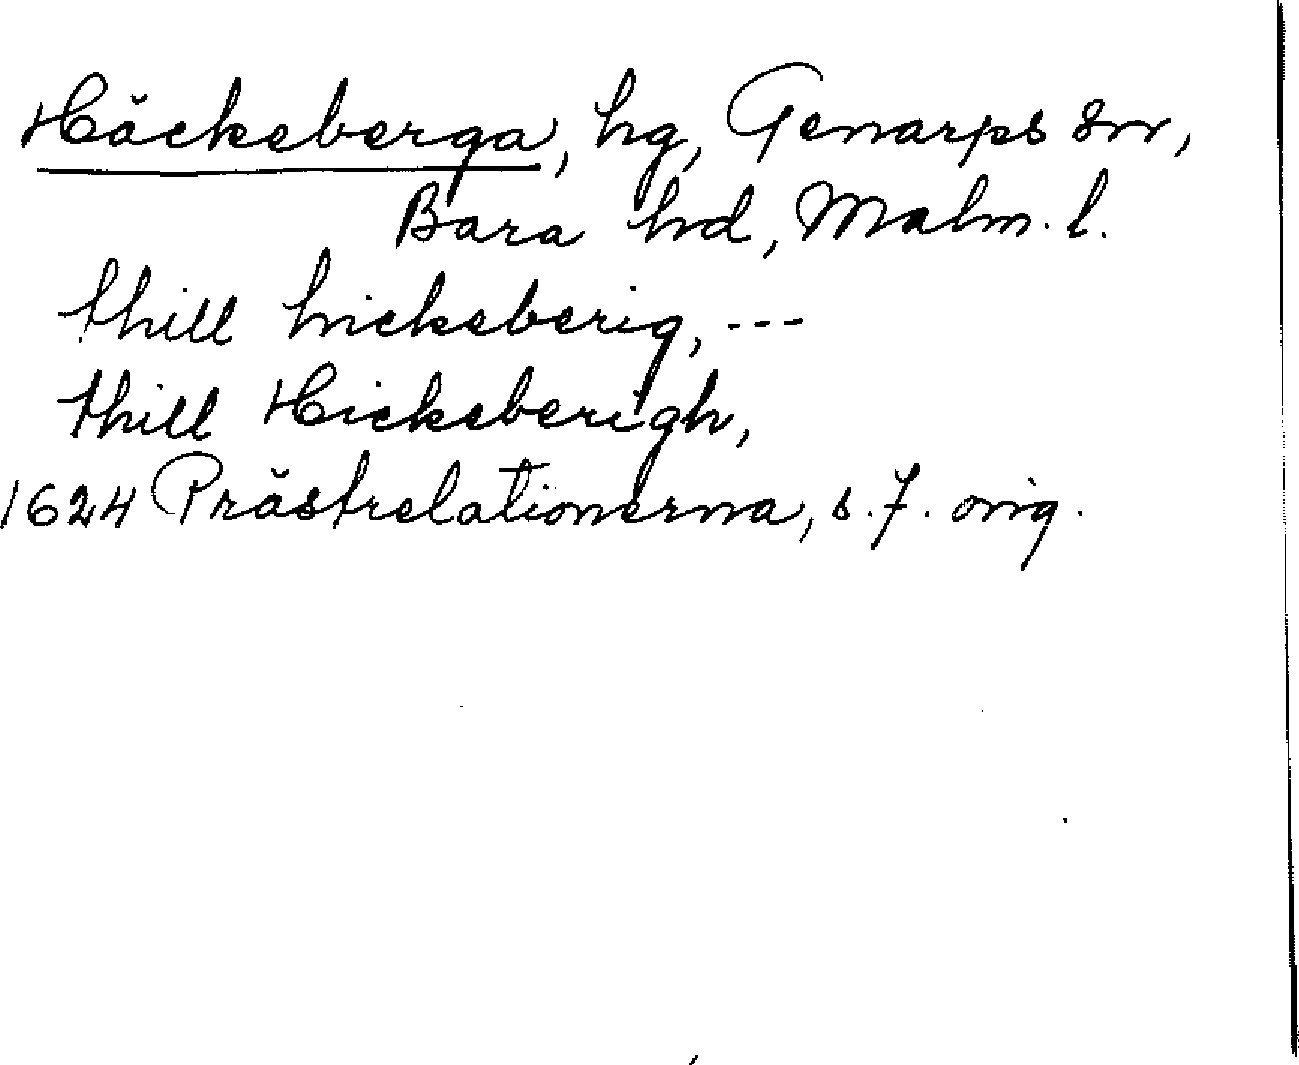 Häckeberga, hg, Genarps sn,
Bara hd, Malm. l.
thill hickeberig, ---
thill Hickeberigh,
1624 Prästrelationerna, s. 7. orig.